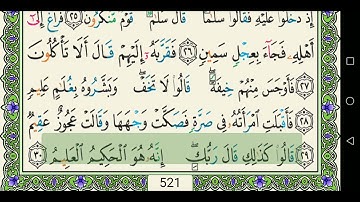 إِذْ دَخَلُوا۟ عَلَيْهِ فَقَالُوا۟ سَلَٰمًا ۖ قَالَ سَلَٰمٌ قَوْمٌ مُّنكَرُونَ ٢٥ فَرَاغَ إِلَىٰٓ
أَهْلِهِۦ فَجَآءَ بِعِجْلٍ سَمِينٍ ٢٦ فَقَرَّبَهُۥٓ إِلَيْهِمْ قَالَ أَلَا تَأْكُلُونَ
٢٧ فَأَوْجَسَ مِنْهُمْ خِيفَةً ۖ قَالُوا۟ لَا تَخَفْ ۖ وَبَشَّرُوهُ بِغُلَٰمٍ عَلِيمٍ
٢٨ فَأَقْبَلَتِ ٱمْرَأَتُهُۥ فِى صَرَّةٍ فَصَكَّتْ وَجْهَهَا وَقَالَتْ عَجُوزٌ عَقِيمٌ
٢٩ قَالُوا۟ كَذَٰلِكِ قَالَ رَبُّكِ ۖ إِنَّهُۥ هُوَ ٱلْحَكِيمُ ٱلْعَلِيمُ ٣٠
521